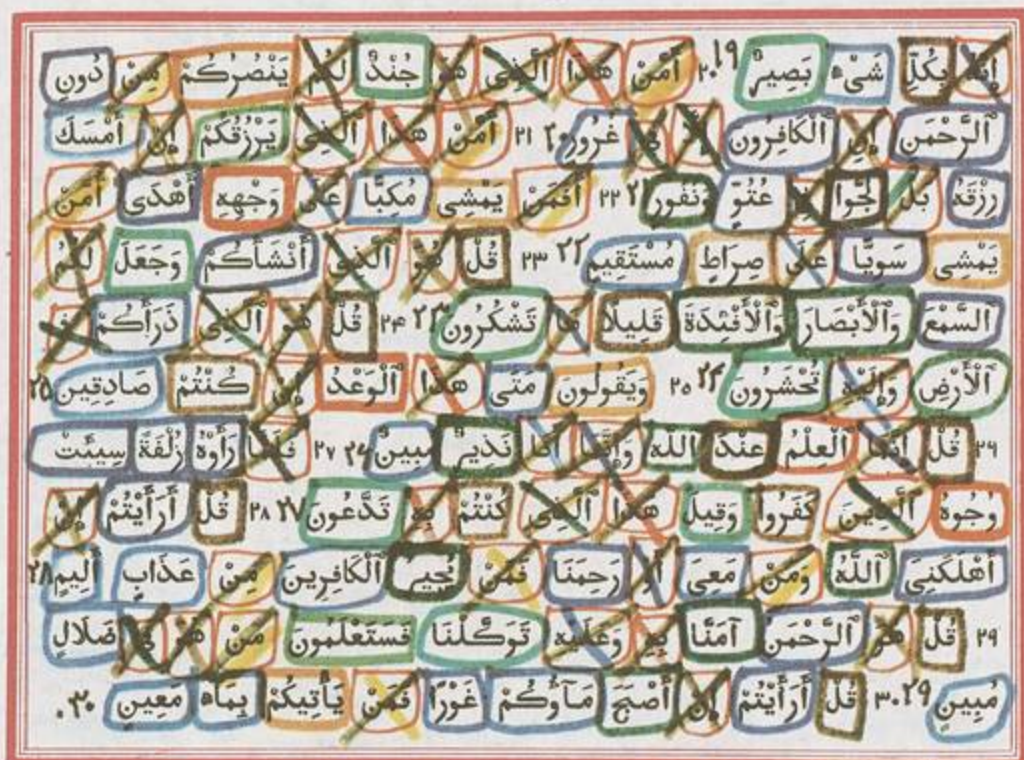 إِنَّهُ بِكُلِّ شَىْءٍ بَصِيرٌ ١٩ ٢٠ أَمَّنْ هَذَا ٱلَّذِى هُوَ جُنْدٌ لَكُمْ يَنْصُرُكُمْ مِنْ دُونِ
ٱلرَّحْمَنِ إِنِ ٱلْكَافِرُونَ إِلَّا فِى غُرُورٍ ٢٠ ٢١ أَمَّنْ هَذَا ٱلَّذِى يَرْزُقُكُمْ إِنْ أَمْسَكَ
رِزْقَهُ بَلْ لَجُّوا فِى عُتُوٍّ وَنُفُورٍ ٢١ ٢٢ أَفَمَنْ يَمْشِى مُكِبًّا عَلَى وَجْهِهِ أَهْدَى أَمَّنْ
يَمْشِى سَوِيًّا عَلَى صِرَاطٍ مُسْتَقِيمٍ ٢٢ ٢٣ قُلْ هُوَ ٱلَّذِى أَنْشَأَكُمْ وَجَعَلَ لَكُمُ
ٱلسَّمْعَ وَٱلْأَبْصَارَ وَٱلْأَفْئِدَةَ قَلِيلًا مَا تَشْكُرُونَ ٢٣ ٢۴ قُلْ هُوَ ٱلَّذِى ذَرَأَكُمْ فِى
ٱلْأَرْضِ وَإِلَيْهِ تُحْشَرُونَ ٢۴ ٢٥ وَيَقُولُونَ مَتَى هَذَا ٱلْوَعْدُ إِنْ كُنْتُمْ صَادِقِينَ ٢٥
٢۶ قُلْ إِنَّمَا ٱلْعِلْمُ عِنْدَ ٱللَّهِ وَإِنَّمَا أَنَا نَذِيرٌ مُبِينٌ ٢۶ ٢٧ فَلَمَّا رَأَوْهُ زُلْفَةً سِيئَتْ
وُجُوهُ ٱلَّذِينَ كَفَرُوا وَقِيلَ هَذَا ٱلَّذِى كُنْتُمْ بِهِ تَدَّعُونَ ٢٧ ٢٨ قُلْ أَرَأَيْتُمْ إِنْ
أَهْلَكَنِىَ ٱللَّهُ وَمَنْ مَعِىَ أَوْ رَحِمَنَا فَمَنْ يُجِيرُ ٱلْكَافِرِينَ مِنْ عَذَابٍ أَلِيمٍ ٢٨
٢٩ قُلْ هُوَ ٱلرَّحْمَنُ آمَنَّا بِهِ وَعَلَيْهِ تَوَكَّلْنَا فَسَتَعْلَمُونَ مَنْ هُوَ فِى ضَلَالٍ
مُبِينٍ ٢٩ ٣٠ قُلْ أَرَأَيْتُمْ إِنْ أَصْبَحَ مَآؤُكُمْ غَوْرًا فَمَنْ يَأْتِيكُمْ بِمَاءٍ مَعِينٍ ٣٠